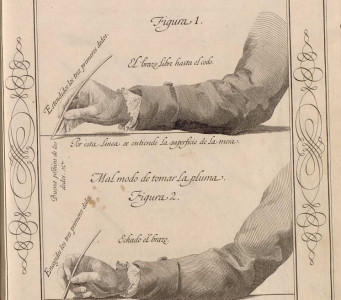 Figura 1.
Estendidos los tres primeros dedos.
El brazo libre hasta el codo.
Por esta linea se entiende la superficie de la mesa.
Buena posicion de los
dedos. &c.
Mal modo de tomar la pluma.
Figura 2.
Encogidos los tres primeros dedos.
Echado el brazo.